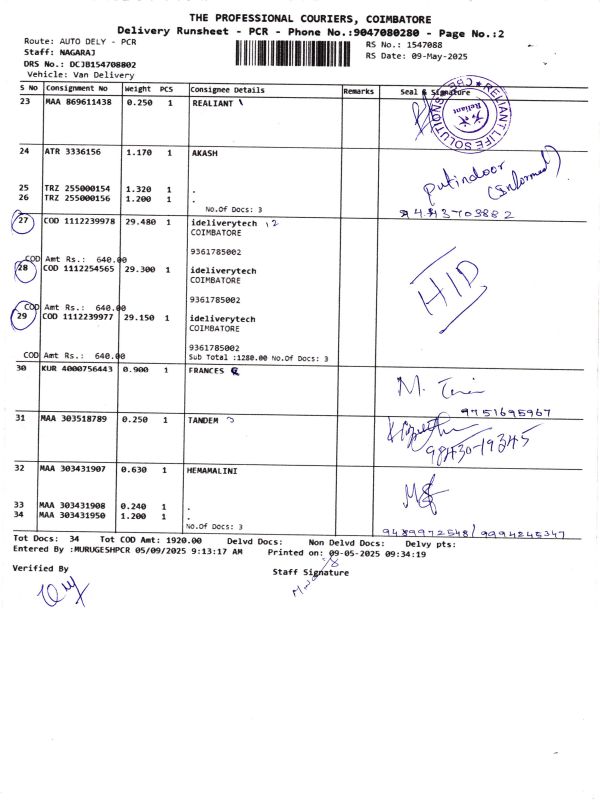 THE PROFESSIONAL COURIERS, COIMBATORE
Delivery Runsheet - PCR - Phone No.:9047080280 - Page No.:2
Route: AUTO DELY - PCR
RS No.: 1547088
Staff: NAGARAJ
RS Date: 09-May-2025
DRS No.: DCJB154708802
Vehicle: Van Delivery
S No Consignment No Weight PCS Consignee Details Remarks Seal & Signature
23 MAA 869611438 0.250 1 REALIANT
RELIANT LIFE SOLUTIONS CBE
Reliant
24 ATR 3336156 1.170 1 AKASH
Putindoor
(Informed)
25 TRZ 255000154 1.320 1 .
26 TRZ 255000156 1.200 1 .
No.Of Docs: 3
27 COD 1112239978 29.480 1 ideliverytech 12
COIMBATORE
9361785002
COD Amt Rs.: 640.00
28 COD 1112254565 29.300 1 ideliverytech
COIMBATORE
HID
9361785002
COD Amt Rs.: 640.00
29 COD 1112239977 29.150 1 ideliverytech
COIMBATORE
9361785002
COD Amt Rs.: 640.00 Sub Total :1280.00 No.Of Docs: 3
30 KUR 4000756443 0.900 1 FRANCES
M.
9751695967
31 MAA 303518789 0.250 1 TANDEM
98430-19345
32 MAA 303431907 0.630 1 HEMAMALINI
33 MAA 303431908 0.240 1 .
34 MAA 303431950 1.200 1 .
No.Of Docs: 3
9489972548/9994245347
Tot Docs: 34 Tot COD Amt: 1920.00 Delvd Docs: Non Delvd Docs: Delvy pts:
Entered By :MURUGESHPCR 05/09/2025 9:13:17 AM Printed on: 09-05-2025 09:34:19
Verified By
Staff Signature